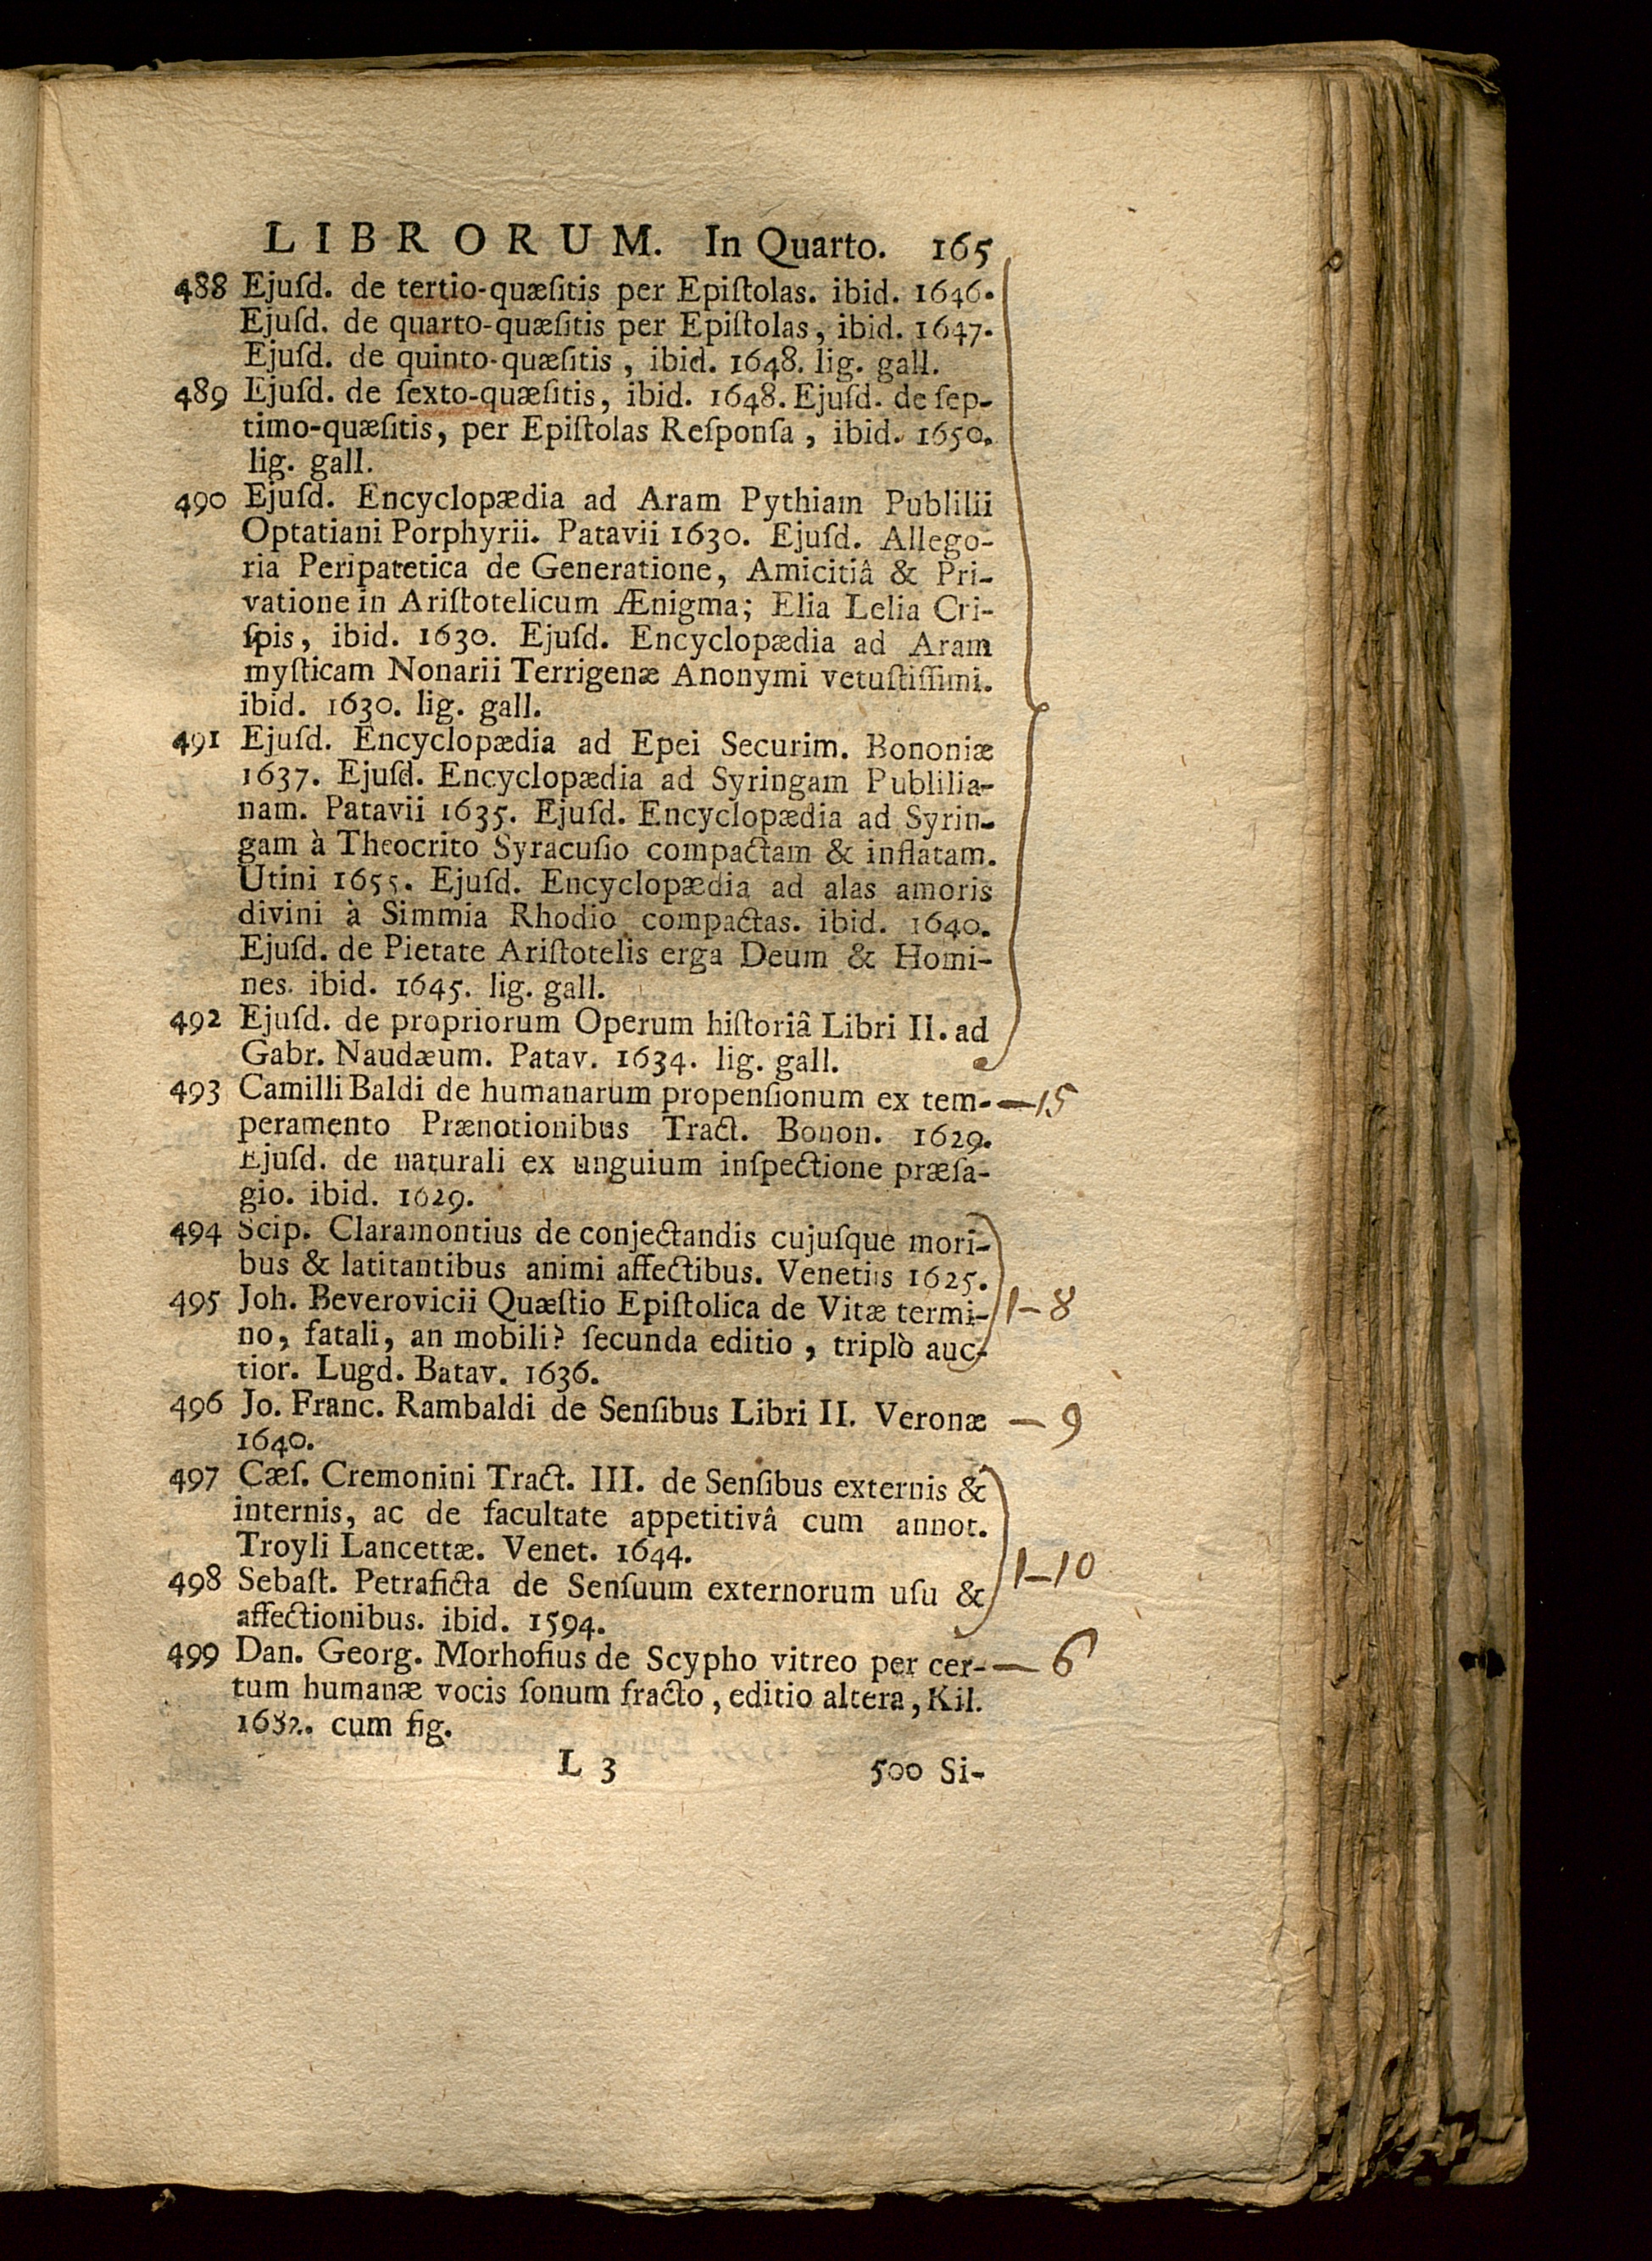 LIBRORUM. In Quarto. 165
488 Ejuſd. de tertio-quæſitis per Epiſtolas. ibid. 1646.
Ejuſd. de quarto-quæſitis per Epiſtolas, ibid. 1647.
Ejuſd. de quinto-quæſitis, ibid. 1648. lig. gall.
489 Ejuſd. de ſexto-quæſitis, ibid. 1648. Ejuſd. de ſep-
timo-quæſitis, per Epiſtolas Reſponſa, ibid. 1650.
lig. gall.
490 Ejuſd. Encyclopædia ad Aram Pythiam Publilii
Optatiani Porphyrii. Patavii 1630. Ejuſd. Allego-
ria Peripatetica de Generatione, Amicitiâ & Pri-
vatione in Ariſtotelicum Ænigma; Elia Lelia Cri-
ſpis, ibid. 1630. Ejuſd. Encyclopædia ad Aram
myſticam Nonarii Terrigenæ Anonymi vetuſtiſſimi.
ibid. 1630. lig. gall.
491 Ejuſd. Encyclopædia ad Epei Securim. Bononiæ
1637. Ejuſd. Encyclopædia ad Syringam Publilia-
nam. Patavii 1635. Ejuſd. Encyclopædia ad Syrin-
gam à Theocrito Syracuſio compactam & inflatam.
Utini 1655. Ejuſd. Encyclopædia ad alas amoris
divini à Simmia Rhodio compactas. ibid. 1640.
Ejuſd. de Pietate Ariſtotelis erga Deum & Homi-
nes. ibid. 1645. lig. gall.
492 Ejuſd. de propriorum Operum hiſtoriâ Libri II. ad
Gabr. Naudæum. Patav. 1634. lig. gall.
493 Camilli Baldi de humanarum propenſionum ex tem- —15
peramento Prænotionibus Tract. Bonon. 1629.
Ejuſd. de naturali ex unguium inſpectione præſa-
gio. ibid. 1629.
494 Scip. Claramontius de conjectandis cujuſque mori-
bus & latitantibus animi affectibus. Venetiis 1625.
495 Joh. Beverovicii Quæſtio Epiſtolica de Vitæ termi- 1—8
no, fatali, an mobili? ſecunda editio, triplò auc-
tior. Lugd. Batav. 1636.
496 Jo. Franc. Rambaldi de Senſibus Libri II. Veronæ —9
1640.
497 Cæſ. Cremonini Tract. III. de Senſibus externis &
internis, ac de facultate appetitivâ cum annot.
Troyli Lancettæ. Venet. 1644.
498 Sebaſt. Petraficta de Senſuum externorum uſu & 1—10
affectionibus. ibid. 1594.
499 Dan. Georg. Morhofius de Scypho vitreo per cer- —6
tum humanæ vocis ſonum fracto, editio altera, Kil.
1682. cum fig.
L 3 500 Si-